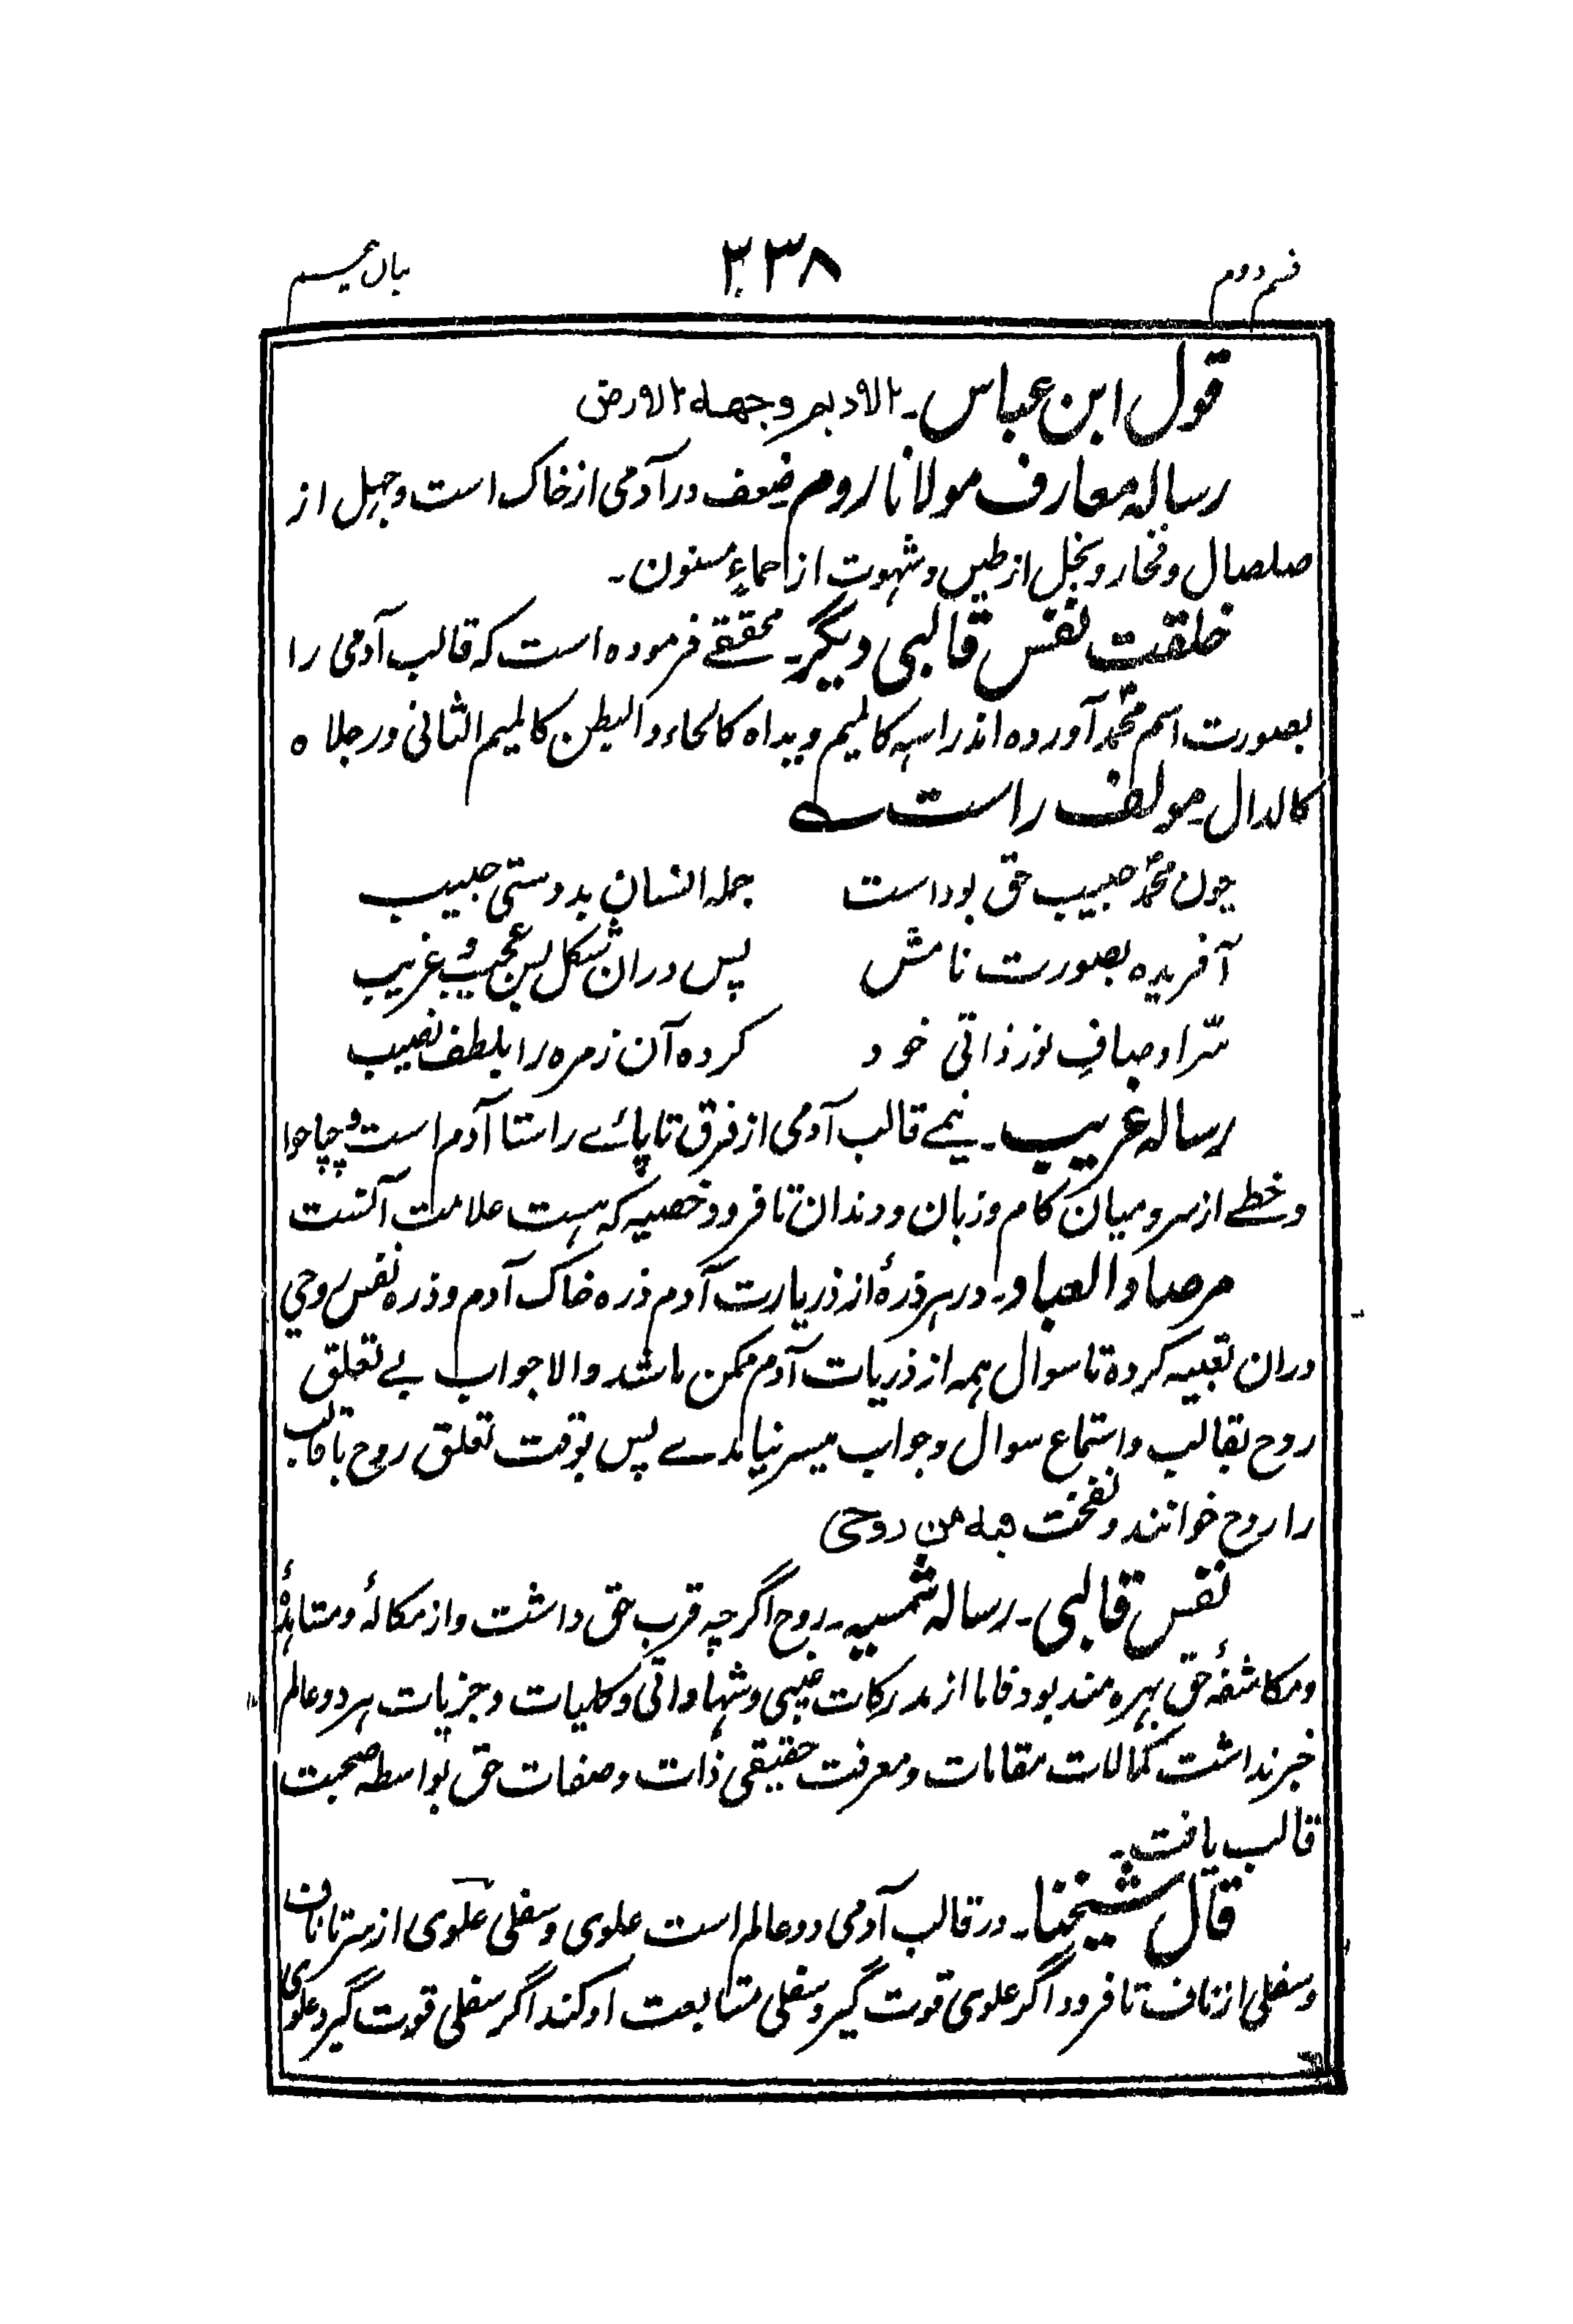 قسم دوم
۲۳۸
بیان
قول ابن عباس۔ الادیم وجهه الارض
رساله معارف مولانا روم ضعف در آدمی از خاک است و جهل از
صلصال و فخار و بخل از طین و شهوت از حماءٍ مسنون۔
خلقت نفس قالبی دیگر۔ محققے فرموده است که قالب آدمی را
بصورت اسم محمّد آورده اند راسه کالمیم و یداه کالحاء والبطن کالمیم الثانی ورجلاه
کالدال۔ مولف راست
چون محمّد حبیب حق بود است جمله انسان بدوستی حبیب
آفریده بصورت نامش پس دران شکل بس عجیب و غریب
سّر اوصافِ نور ذاتی خود کرده آن زمره را بلطف نصیب
رساله غریب۔ نیمے قالب آدمی از فرق تا پائے راستا آدم است و چپا حوا
و خطے از سر و میان کام و زبان و دندان تا فرود خصیه که هست علامت آنست
مرصاد العباد۔ در هر ذرهٔ از ذریارت آدم ذره خاک آدم و ذره نفس روحی
دران تعبیه کرده تا سوال همه از ذریات آدم ممکن باشد والا جواب بے تعلق
روح بقالب و استماع سوال و جواب میسر نیامدے پس بوقت تعلق روح با قالب
را روح خوانند و نفخت فیه من روحی
نفس قالبی۔ رساله شمسیه۔ روح اگرچه قرب حق داشت و از مکالمهٔ و مشاهدهٔ
و مکاشفهٔ حق بهره مند بود فاما از مدرکات غیبی و شهاداتی و کلیات و جزیات هر دو عالم
خبر نداشت کمالات مقامات و معرفت حقیقی ذات و صفات حق بواسطه صحبت
قالب یافت۔
قال شیخنا۔ در قالب آدمی دو عالم است علوی و سفلی علوی از سر تا ناف
و سفلی از ناف تا فرود اگر علوی قوت گیرد سفلی متابعت او کند اگر سفلی قوت گیرد علوی